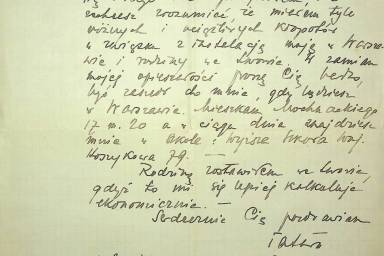 zechcesz zrozumieć, że miałem tyle
różnych i uciążliwych kłopotów
w związku z instalacją moją w Warsza-
wie i rodziny we Lwowie. W zamian
mojej opieszałości proszę Cię bardzo,
byś zaszedł do mnie, gdy będziesz
w Warszawie. Mieszkam Mochnackiego
17 m. 20 a w ciągu dnia znajdziesz
mnie w szkole: Wyższa Szkoła Woj.
Koszykowa 79. —
Rodzinę zostawiłem we Lwowie,
gdyż to mi się lepiej kalkuluje
ekonomicznie. —
Serdecznie Cię pozdrawiam